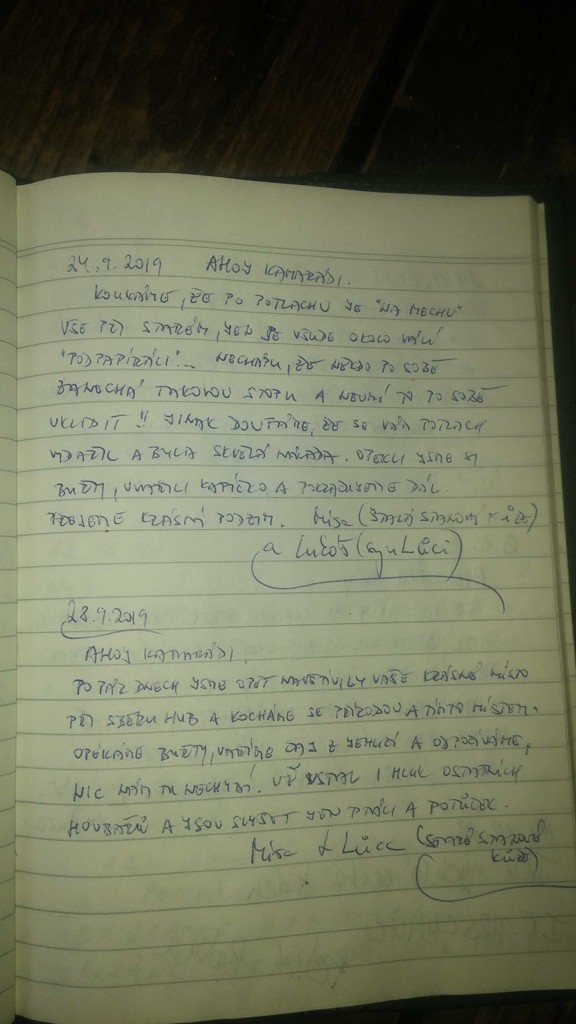 24.9.2019 AHOJ KAMARÁDI.
KOUKÁME, ŽE PO POTLACHU JE "NA MECHU"
VŠE PŘI STARÉM, JEN SE VŠUDE OKOLO VÁLÍ
"PODPAPÍRÁCI"... NECHÁPU, ŽE NĚKDO PO SOBĚ
ZANECHÁ TAKOVOU STOPU A NEUMÍ TO PO SOBĚ
UKLIDIT!! JINAK DOUFÁME, ŽE SE VÁM POTLACH
VYDAŘIL A BYLA SKVĚLÁ NÁLADA. OPEKLI JSME SI
BUŘTY, UVAŘILI KAFÍČKO A POKRAČUJEME DÁL.
PŘEJEME KRÁSNÝ PODZIM. Míša (STARÁ STANOVÁ KŮŽE)
a Lukáš (syn Lůci)
28.9.2019
AHOJ KAMARÁDI.
PO PÁR DNECH JSME OPĚT NAVŠTÍVILY VAŠE KRÁSNÉ MÍSTO
PŘI SBĚRU HUB A KOCHÁME SE PŘÍRODOU A TÍMTO MÍSTEM.
OPÉKÁME BUŘTY, VAŘÍME ČAJ Z JEHLIČÍ A ODPOČÍVÁME,
NIC NÁM TU NECHYBÍ. UŽ USTAL I HLUK OSTATNÍCH
HOUBAŘŮ A JSOU SLYŠET JEN PTÁCI A POTŮČEK.
Míša & Lůca (STARÉ STANOVÉ
KŮŽE)